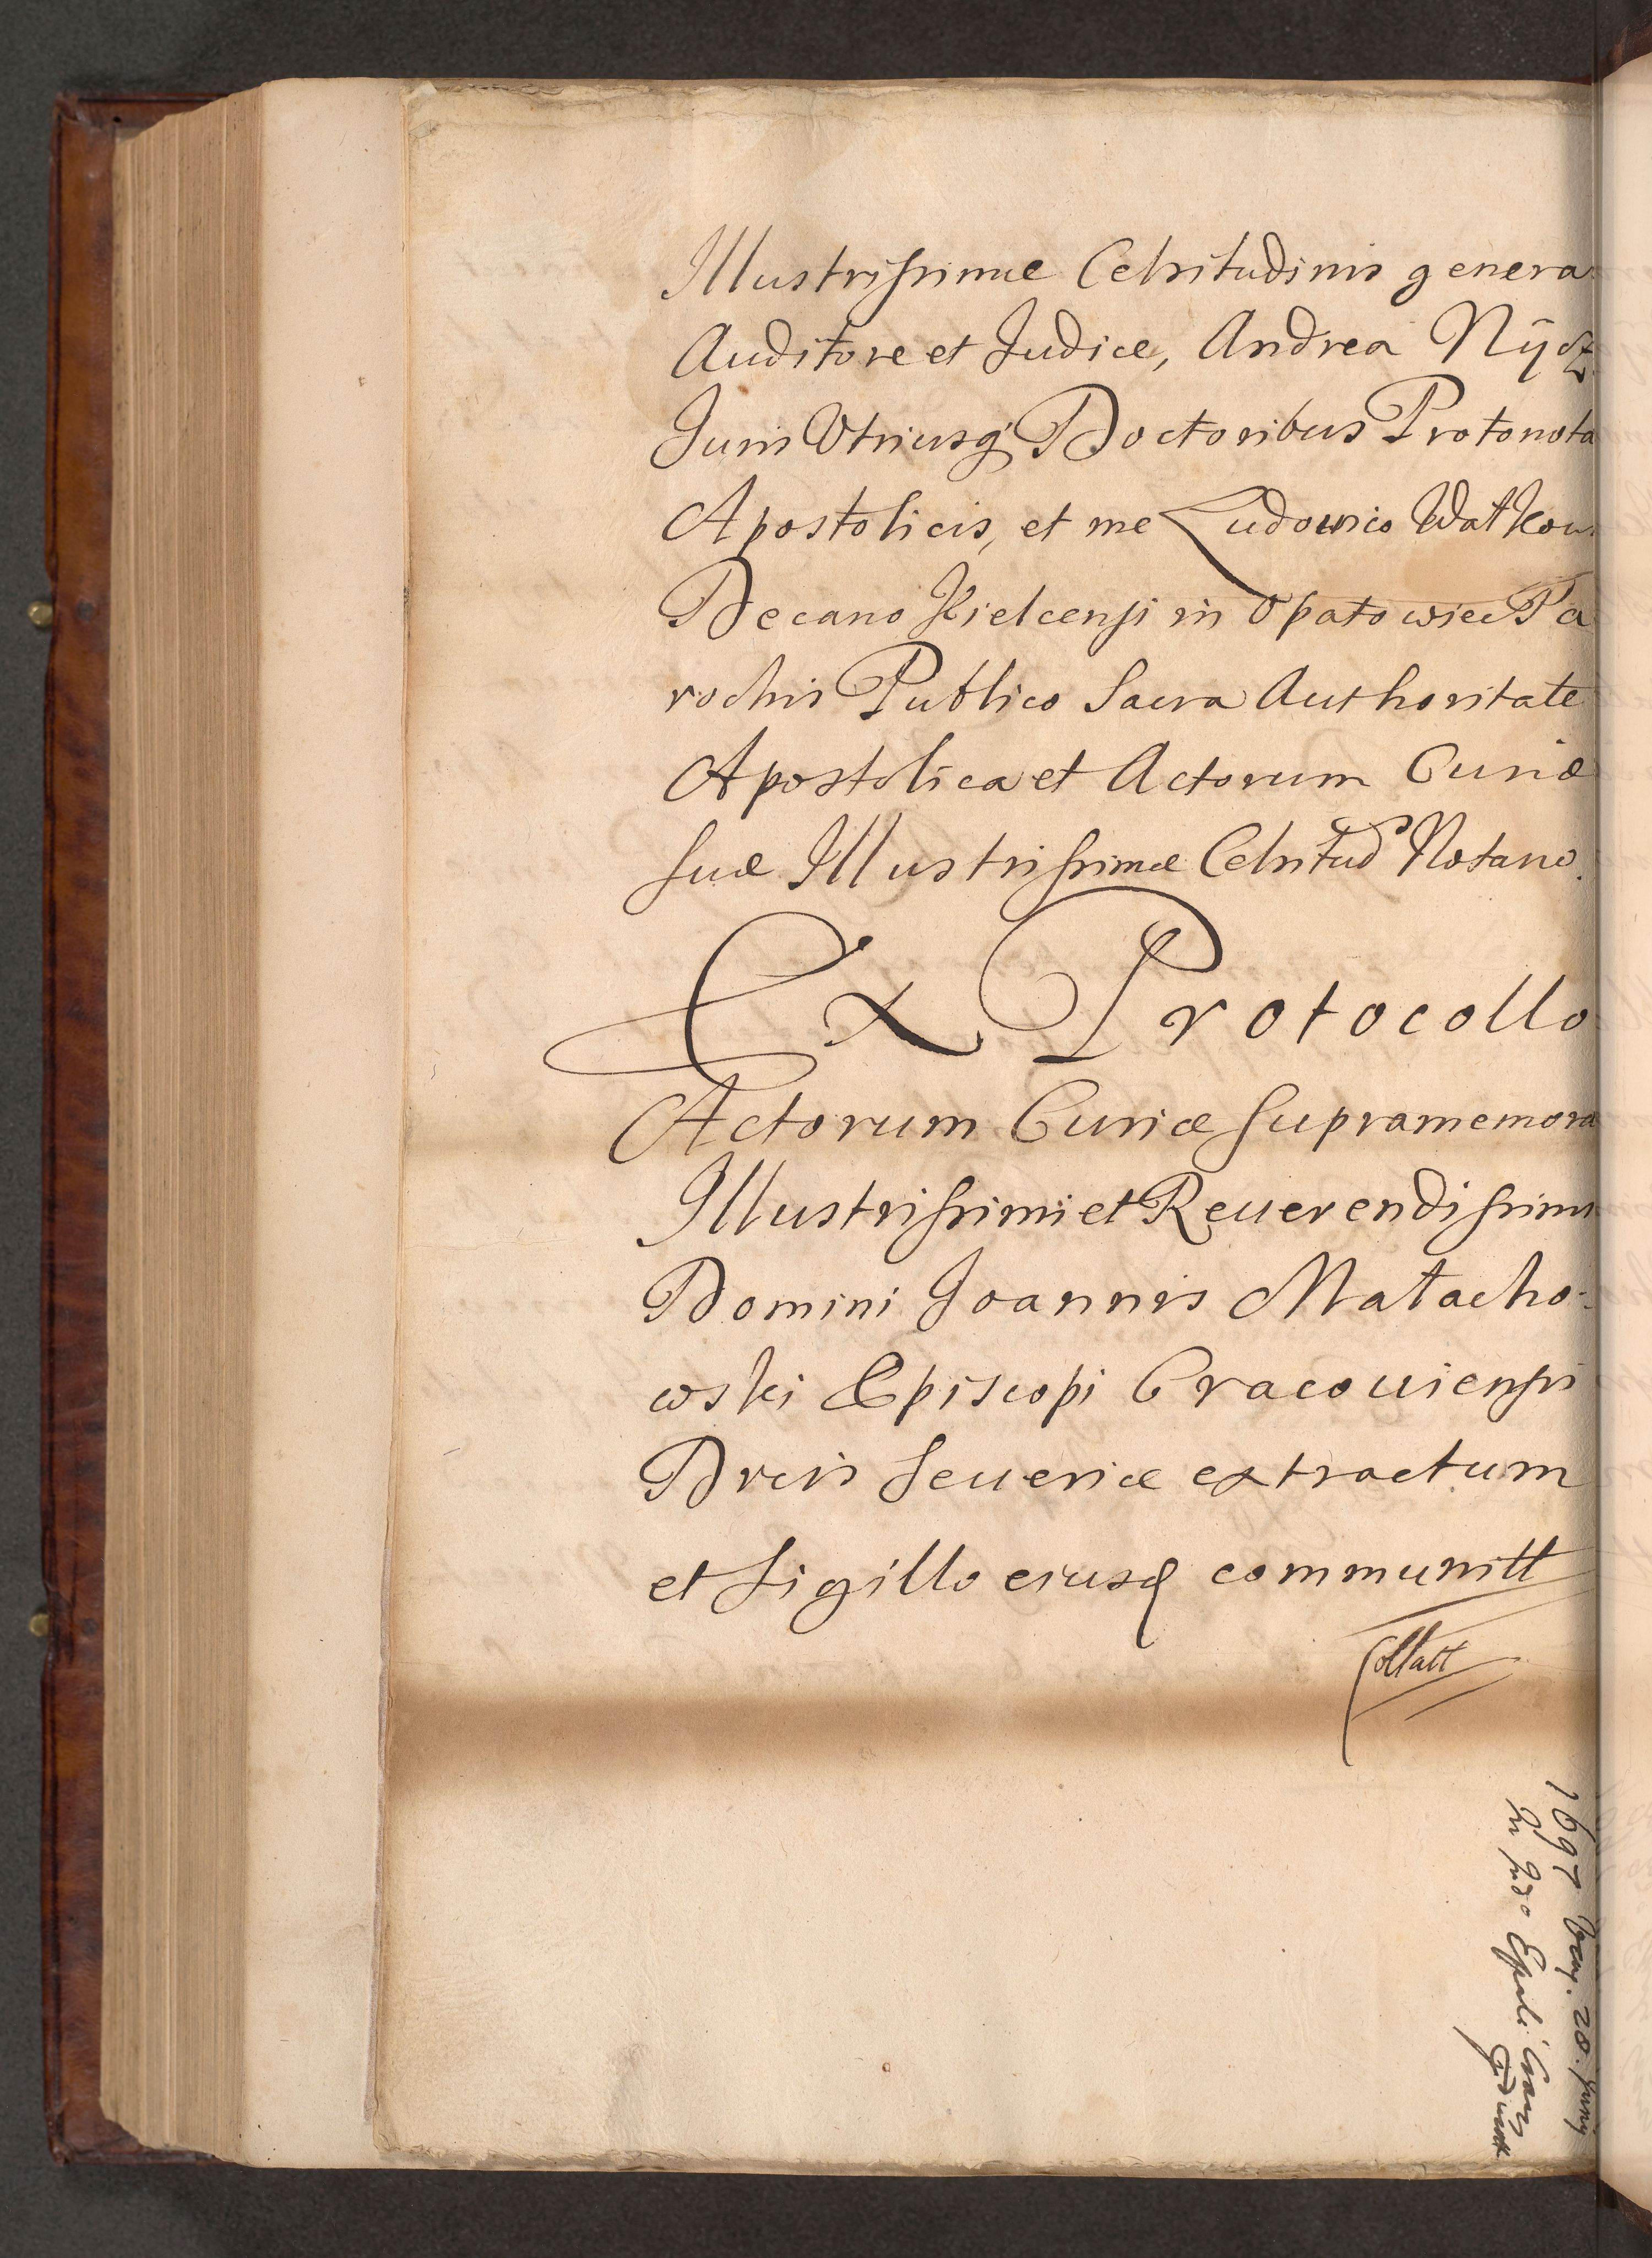 Illustrissimæ Celsitudinis genera
Auditore et Judice, Andrea Nÿcz
Juris Utriusq Doctoribus Protonota
Apostolicis, et me Ludowico Wałkow
Decano Kielcensi in Opatowiec Pa
rochis Publico Sacra Authoritate
Apostolica et Actorum Curiæ
Suæ Illustrissimæ Celsitud Notario.
Ex Protocollo
Actorum Curiæ Supramemora
Illustrissimi et Reuerendissimi
Domini Joannis Małacho-
wski Episcopi Cracouiensis
Ducis Seueriæ extractum
et Sigillo eiusd communitt
Collatt
1697 28. Juny
In Epali